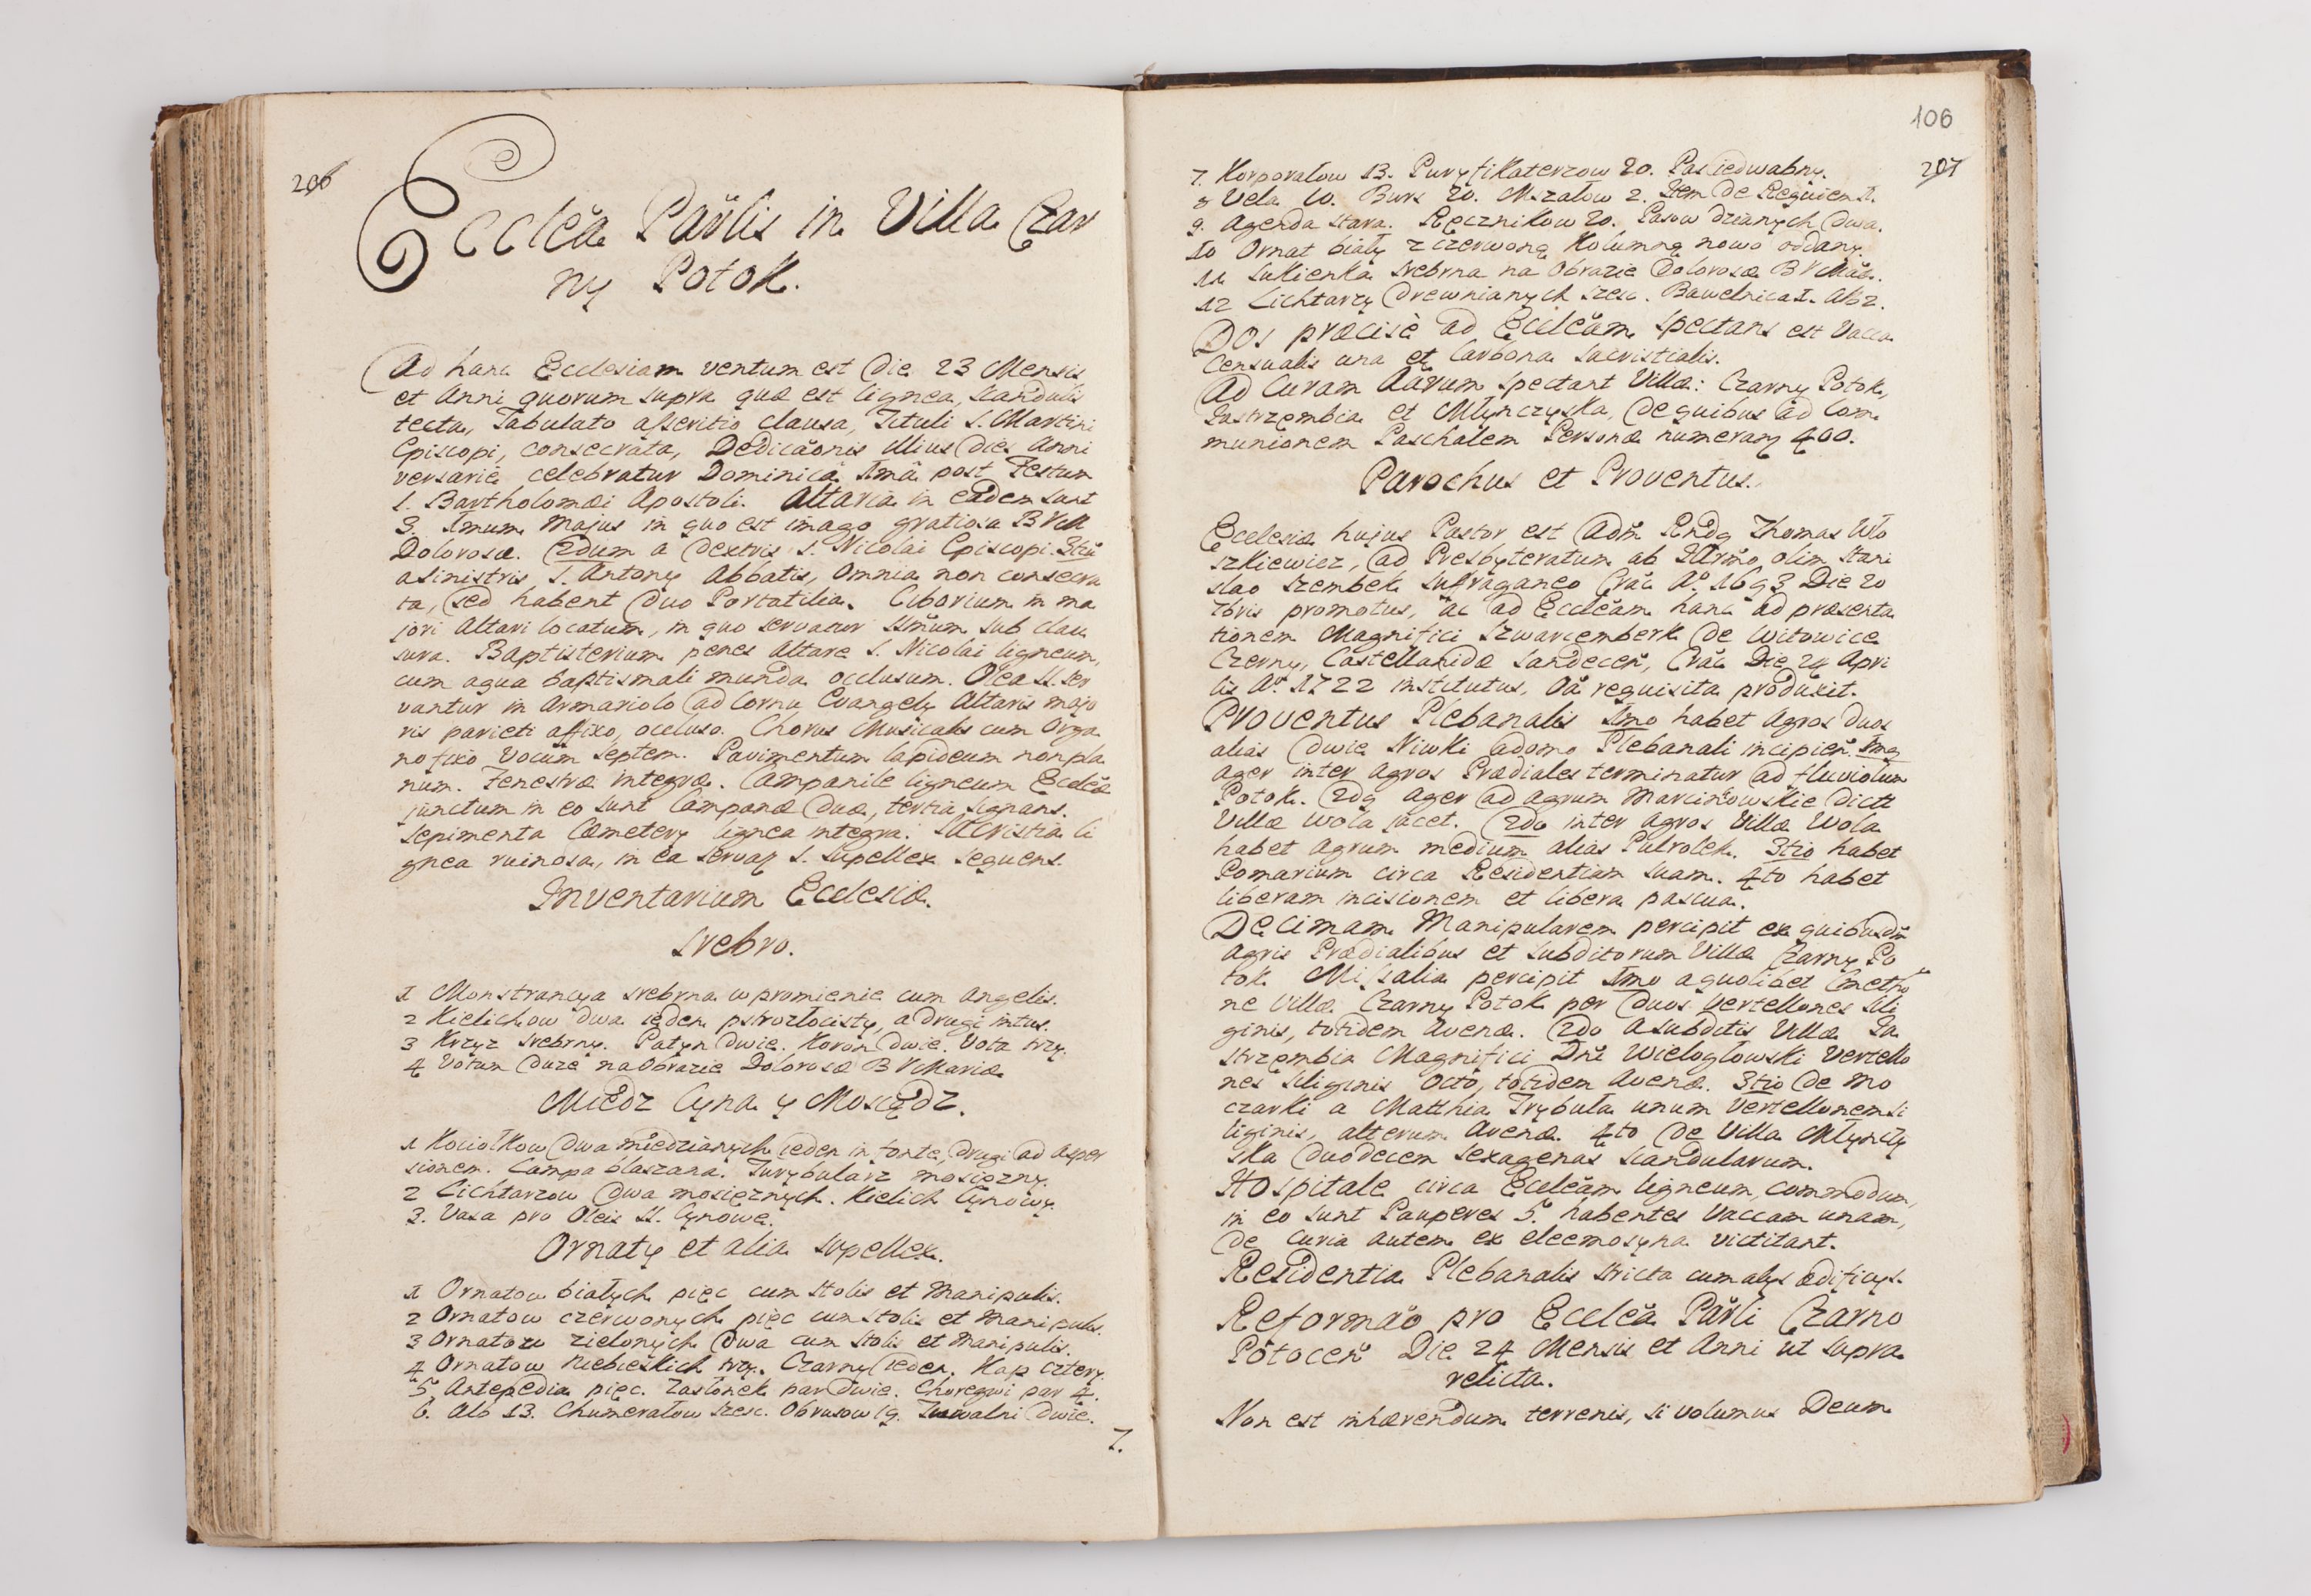 206
Ecclẽa Pãrlis in Villa Czar
ny Potok.
Ad hanc Ecclesiam ventum est Die 23 Mensis
et Anni quorum supra quæ est lignea, scandulis
tecta, Tabulato asseritio clausa, Tituli S. Martini
Episcopi, consecrata, Dedicãonis illius Dies Anni
versarie celebratur Dominicâ Imâ post Festum
S. Bartholomæi Apostoli. Altaria in eadem sunt
3. Imum Majus in quo est imago gratiosa BVM
Dolorosæ. 2dum a dextris S. Nicolai Episcopi. 3tiũ
a sinistris S. Antonij Abbatis, omnia non consecra
ta, sed habent duo Portatilia. Ciborium in ma
jori Altari locatum, in quo servatur SSmum sub clau
sura. Baptisterium penes Altare S. Nicolai ligneum,
cum aqua baptismali munda occlusum. Olea SS. ser
vantur in Armariolo ad Cornu Evangely Altaris majo
ris parieti affixo, occluso. Chorus Musicalis cum Orga
no fixo vocum septem. Pavimentum lapideum non pla
num. Fenestræ integræ. Campanile ligneum Ecclẽæ
junctum in eo sunt Campanæ duæ, tertia signans.
Sepimenta Cæmetery lignea integra. Sacristia li
gnea ruinosa, in ea servaŋ S. supellex sequens.
Inventarium Ecclesiæ.
Srebro.
1 Monstrancya srebrna w promienie cum Angelis.
2 Kielichow dwa ieden pstrozłocisty, a drugi intus.
3 Krzyz srebrny. Patyn dwie. Koron dwie. Vota trzy.
4 Votum duze na Obrazie Dolorosæ BVMariæ
Miedz Cyna y Mosiądz.
1 Kociołkow dwa miedzianych ieden in fonte, drugi ad Asper
sionem. Lampa blaszana. Turybularz mosiezny.
2 Lichtarzow dwa mosięznych. Kielich Cynowy.
3. Vasa pro Oleis SS. Cynowe.
Ornaty et alia supellex.
1 Ornatow białych pięc cum stolis et Manipulis.
2 Ornatow czerwonych pięc cum stolis et Manipulis.
3 Ornatow zielonych dwa cum stolis et Manipulis.
4 Ornatow niebieskich trzy. Czarny ieden. Kap cztery.
5 Antepedia pięc. Zasłonek par dwie. Choregwi par 4.
6. Alb 13. Chumerałow szesc. Obrusow 19. Tuwalni dwie.
7.
106
207
7. Korporałow 13. Puryfikaterzow 20. Pas iedwabny.
8 Vela 10. Burs 20. Mszałow 2. Item de Requiem 1.
9. Agenda stara. Ręcznikow 20. Pasow dzianych dwa.
10 Ornat biały z czerwoną Kolumną nowo oddany.
11 Sukienka srebrna na Obrazie Dolorosæ BVMãæ.
12 Lichtarzy drewnianych szesc. Bawelnica 1. Alb 2.
Dos præcisè ad Ecclẽam spectans est Vacca
Censualis una et Carbona Sacristialis.
Ad Curam Aãrum spectant Villæ: Czarny Potok,
Jastrzembia et Młynczyska, de quibus ad Com
munionem Paschalem Personæ numeranŋ 400.
Parochus et Proventus.
Ecclesiæ hujus Pastor est Adm̃ Rndq Thomas Wło
szkiewicz, ad Presbyteratum ab Illrm̃o olim Stani
slao Szembek Suffraganeo Crãc Aº 1693 Die 20
7bris promotus, ac ad Ecclẽam hanc ad præsenta
tionem Magnifici Szwarcemberk de Witowice
Czerny, Castellanidæ Sandeceñ, Crãc Die 24 Apri
lis Aº 1722 institutus, Oã requisita produxit.
Proventus Plebanalis Imo habet Agros duos
alias dwie Niwki a domo Plebanali incipieñ. Imq
ager inter Agros Prædiales terminatur ad fluviolum
Potok. 2dq ager ad agrum Marcinkowskie dictt
Villæ Wola jacet. 2do inter Agros Villæ Wola
habet Agrum medium alias Pulrolek. 3tio habet
Pomarium circa Residentiam suam. 4to habet
liberam incisionem et libera pascua.
Decimam Manipularem percipit ex quibusdm̃
Agris Prædialibus et Subditorum Villæ Czarny Po
tok. Missalia percipit Imo a quolibet Cmetho
ne Villæ Czarny Potok per duos Vertellones sili
ginis, totidem avenæ. 2do a subditis Villæ Ja
strzembia Magnifici Dñi Wielogłowski Vertello
nes siliginis octo, totidem Avenæ. 3tio de Mo
czarki a Matthia Trybuła unum Vertellonem si
liginis, alterum Avenæ. 4to de Villa Młynczy
ska duodecem sexagenas scandularum.
Hospitale circa Ecclẽam ligneum, commodum,
in eo sunt Pauperes 5. habentes Vaccam unam,
de Curia autem ex eleemosyna victitant.
Residentia Plebanalis stricta cum alys ædificys.
Reformão pro Ecclẽa Pãrli Czarno
Potoceñ Die 24 Mensis et Anni ut supra
relicta.
Non est inhærendum terrenis, si volumus Deum